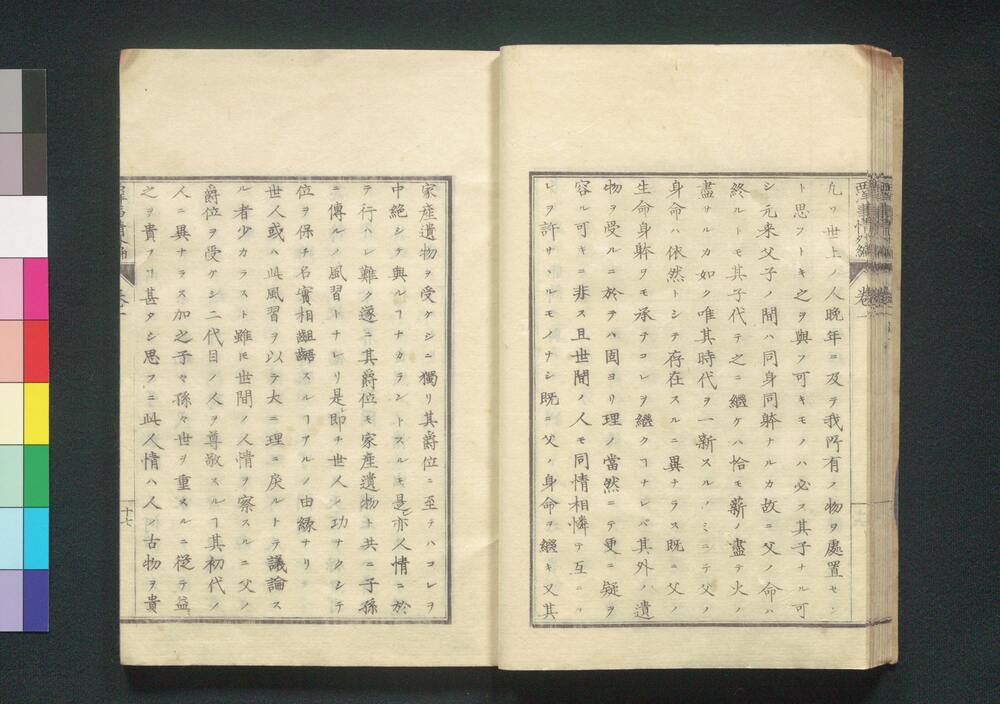 凡ソ世上ノ人晩年ニ及テ我所有ノ物ヲ處置セン
ト思フトキ之ヲ與フ可キモノハ必ス其子ナル可
シ元来父子ノ間ハ同身同躰ナルカ故ニ父ノ命ハ
終ルトモ其子代テ之ニ繼ケハ恰モ薪ノ盡テ火ノ
盡サルカ如ク唯其時代ヲ一新スルノミニテ父ノ
身命ハ依然トシテ存在スルニ異ナラス既ニ父ノ
生命身躰ヲモ承テコレヲ繼クヿナレバ其外ノ遺
物ヲ受ルニ於テハ固ヨリ理ノ當然ニテ更ニ疑ヲ
容ル可キニ非ス且世間ノ人モ同情相憐テ互ニコ
レヲ許サヽルモノナシ既ニ父ノ身命ヲ繼キ又其
十六
家産遺物ヲ受ケシニ獨リ其爵位ニ至テハコレヲ
中絶シテ與ルヿナカラントスルモ是亦人情ニ於
テ行ハレ難ク遂ニ其爵位モ家産遺物ト共ニ子孫
ニ傳ルノ風習トナレリ是即チ世人ノ功ナクシテ
位ヲ保チ名實相齟齬スルヿアルノ由縁ナリ
世人或ハ此風習ヲ以テ大ニ理ニ戻ルトテ議論ス
ル者少カラスト雖𪜈世間ノ人情ヲ察スルニ父ノ
爵位ヲ受ケシ二代目ノ人ヲ尊敬スルヿ其初代ノ
人ニ異ナラス加之子々孫々世ヲ重スルニ從テ益
之ヲ貴フヿ甚タシ思フニ此人情ハ人ノ古物ヲ貴
十七